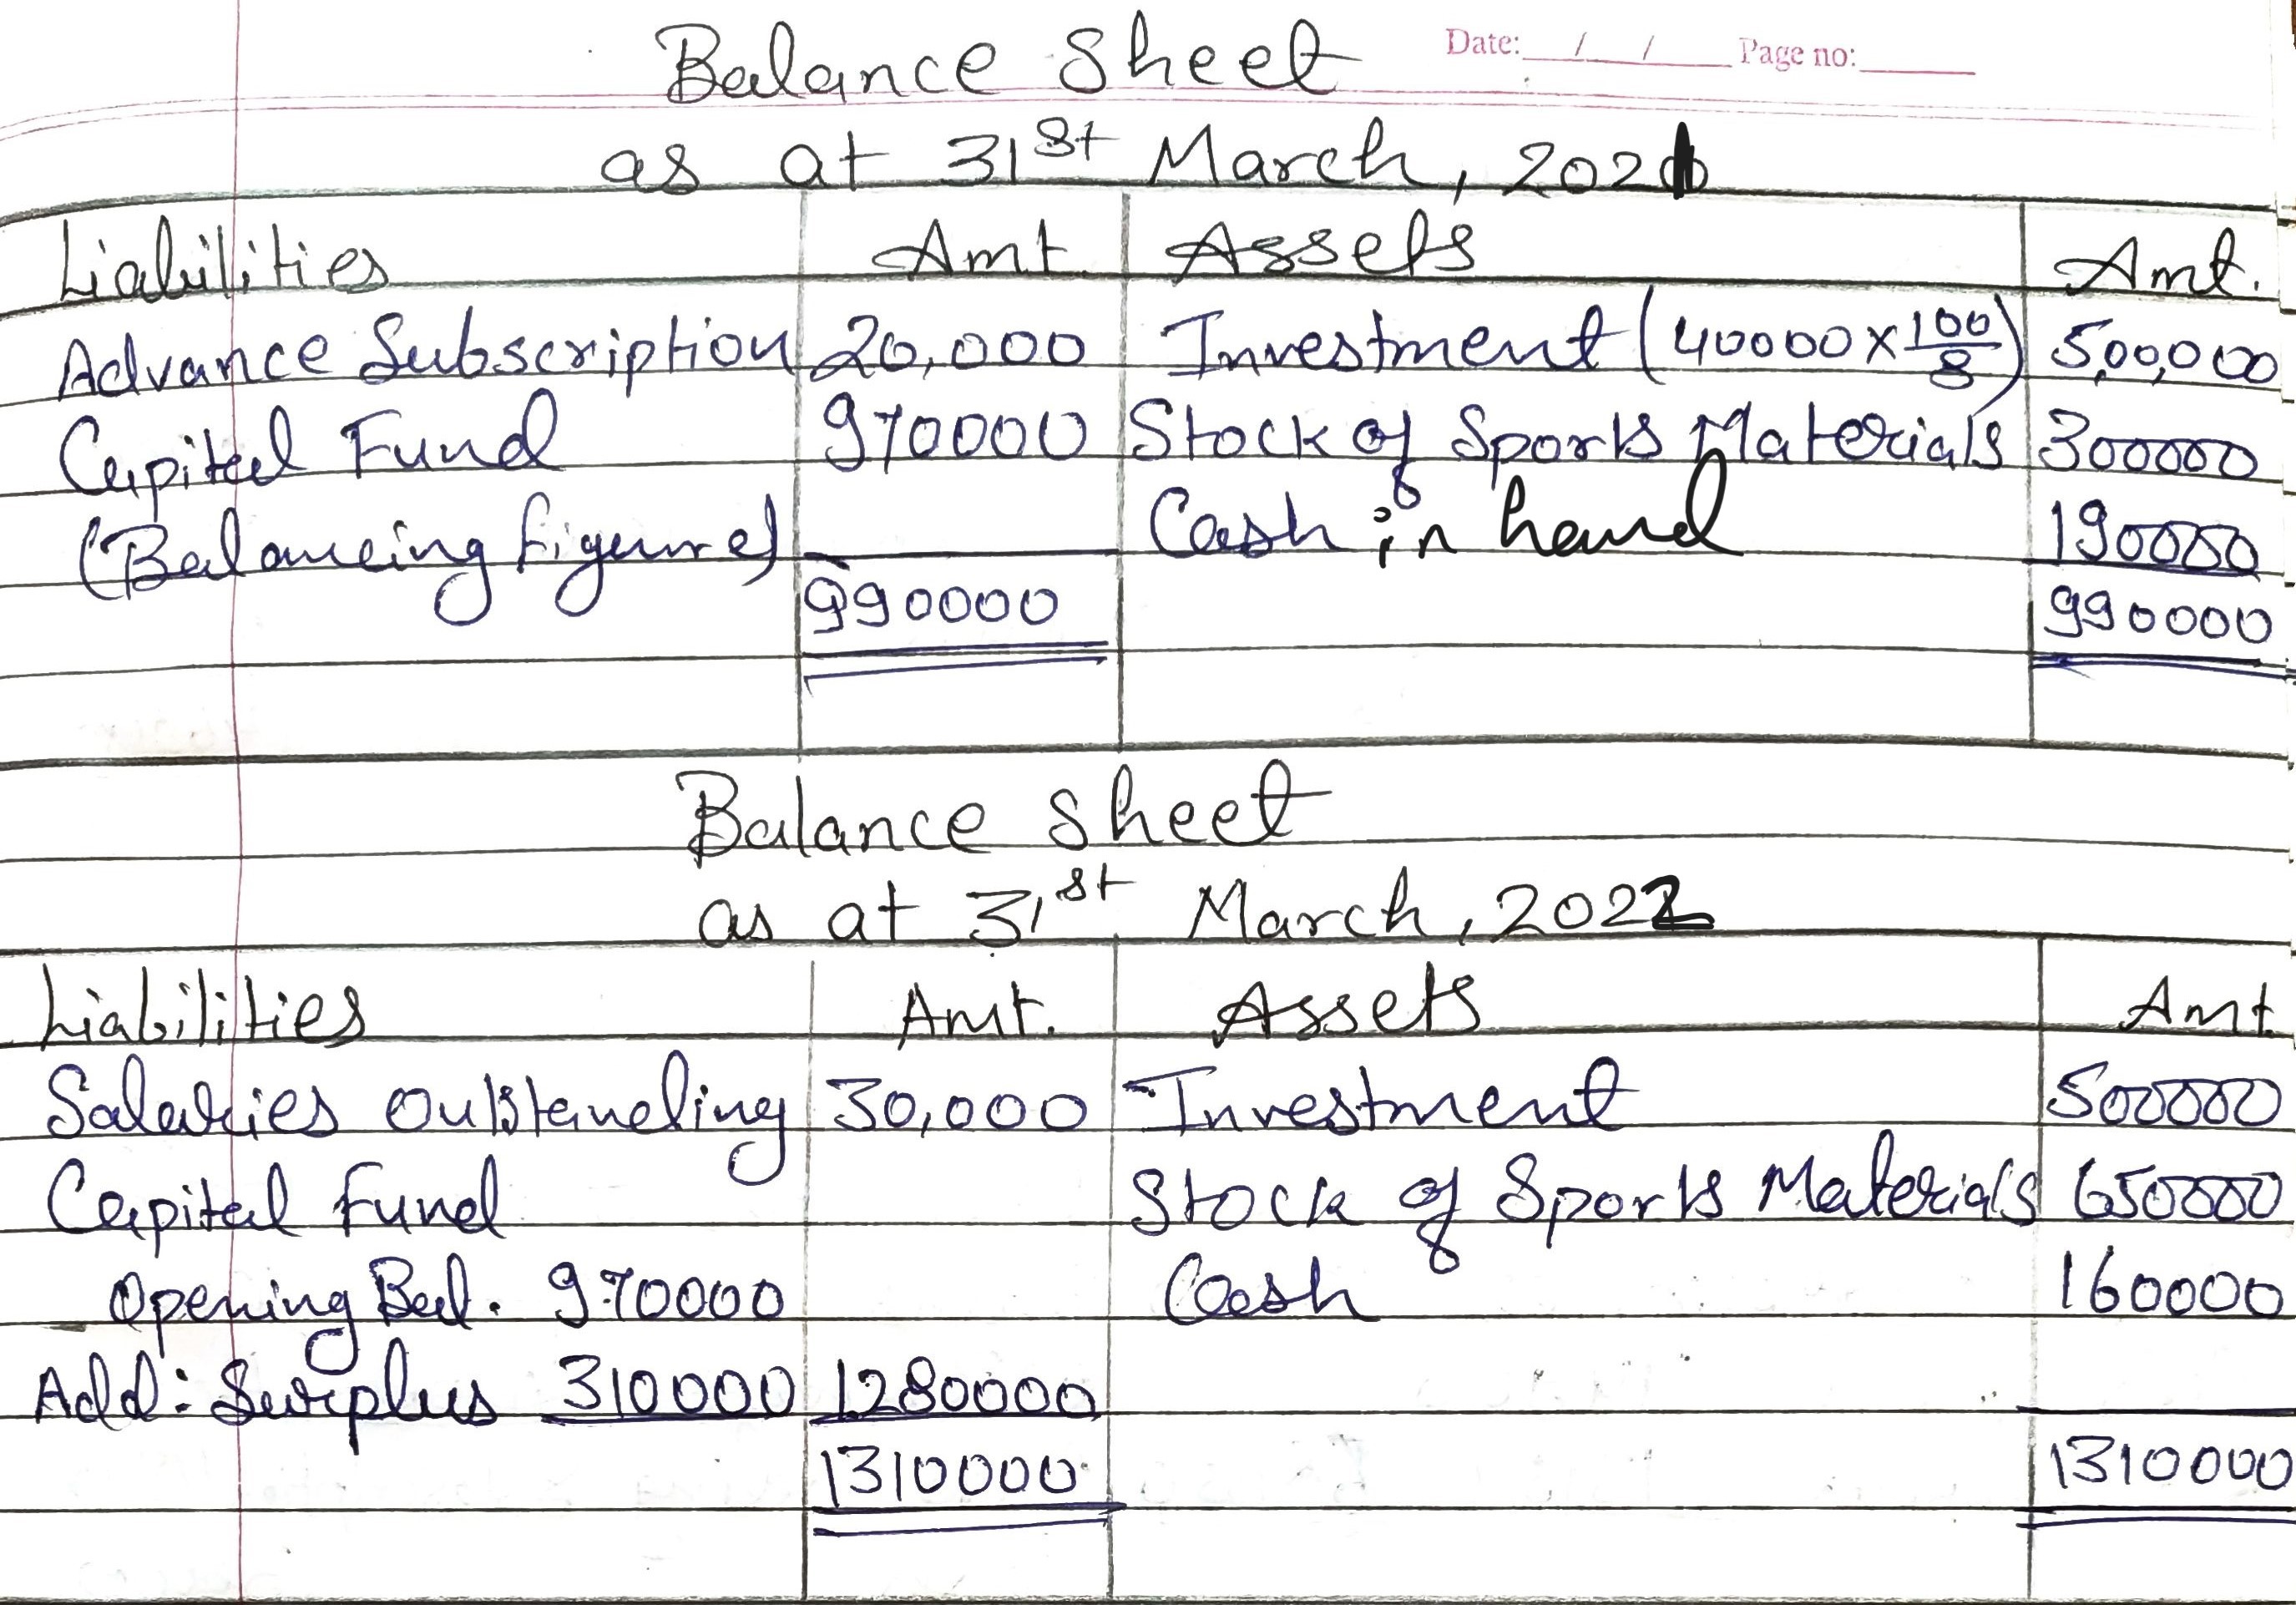 Balance Sheet Date: / / Page no:
as at 31st March, 2021
Liabilities Amt. Assets Amt.
Advance Subscription 20,000 Investment (40000 × 100/8) 5,00,000
Capital Fund 970000 Stock of Sports Materials 300000
(Balancing figure) Cash in hand 190000
990000 990000
Balance Sheet
as at 31st March, 2022
Liabilities Amt. Assets Amt
Salaries Outstanding 30,000 Investment 500000
Capital Fund Stock of Sports Materials 650000
Opening Bal. 970000 Cash 160000
Add: Surplus 310000 1280000
1310000 1310000